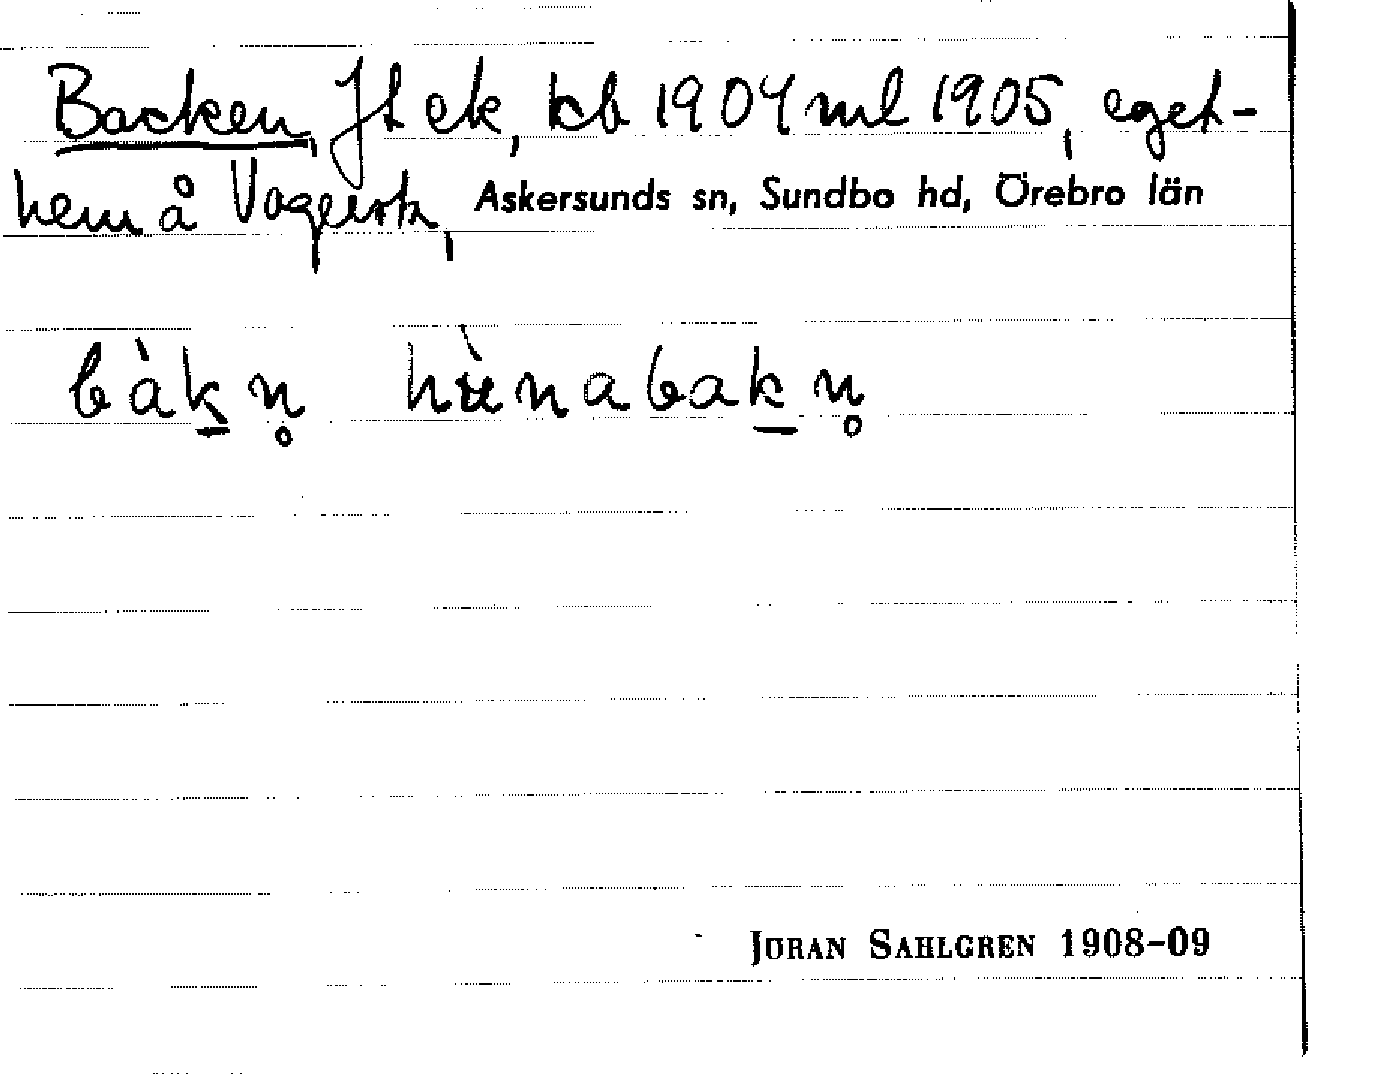 Backen, Jt ek, kb 1904 ml 1905, eget-
hem å Askersunds sn, Sundbo hd, Örebro län
bàkn̥ hæ̀nabakn̥
JÖRAN SAHLGREN 1908-09